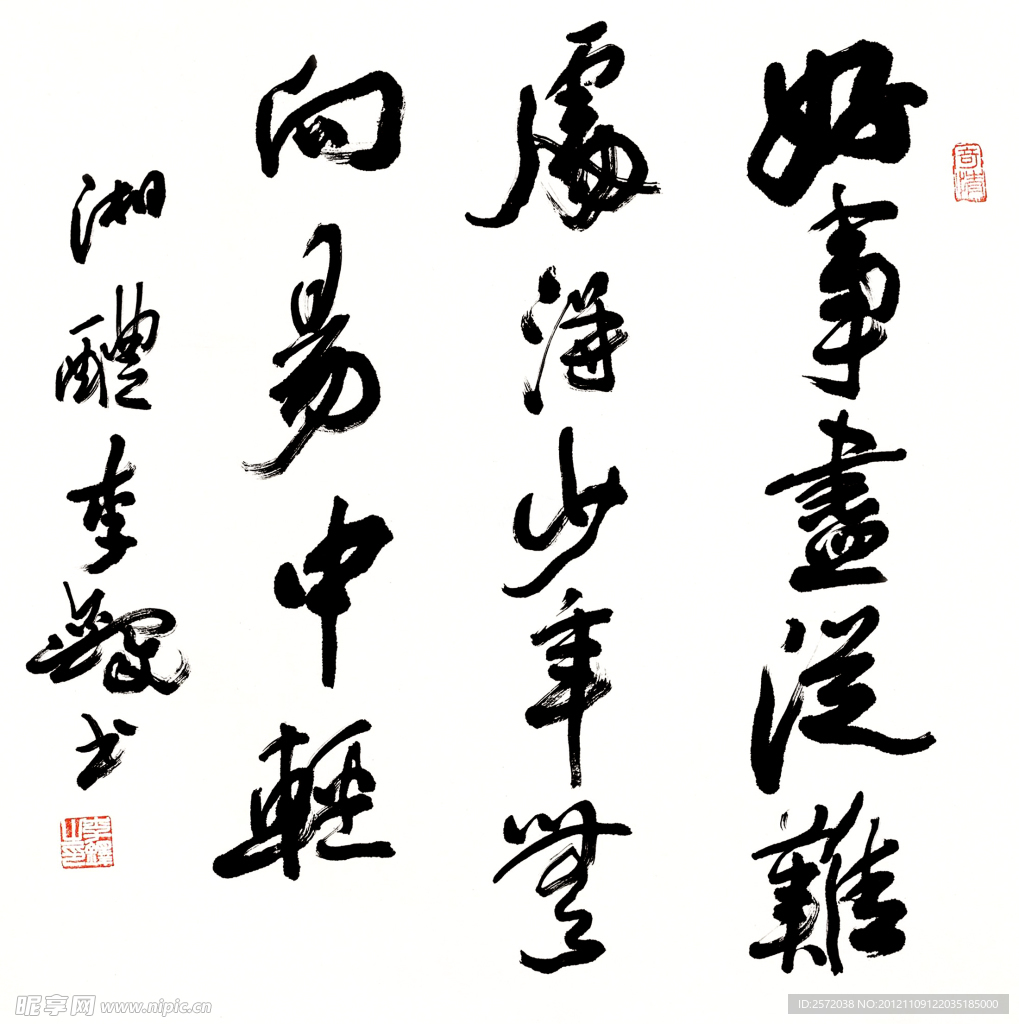 好事盡從難
處得少年無
向易中輕
湘醴李鐸书
李鐸
昵享网 www.nipic.cn
ID:2572038 NO:20121109122035185000